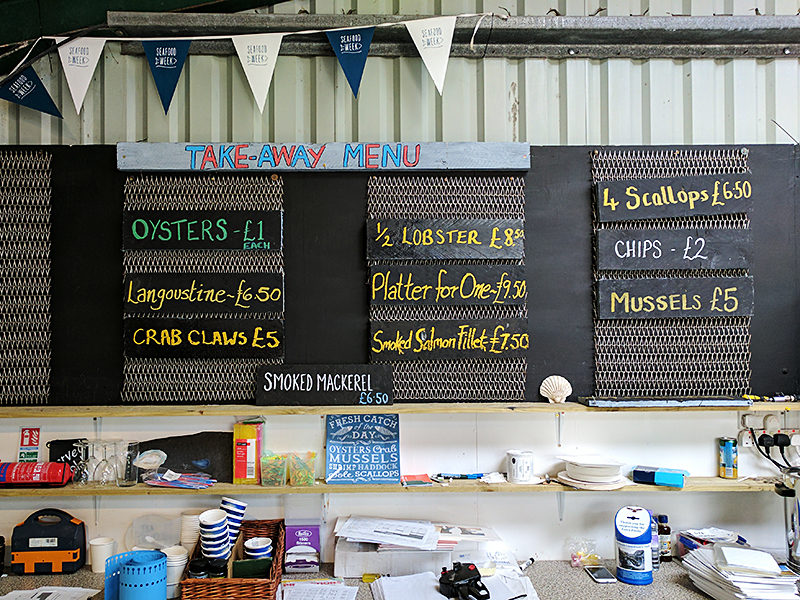 SEAFOOD
WEEK
SEAFOOD
WEEK
SEAFOOD
WEEK
SEAFOOD
WEEK
SEAFOOD
WEEK
SEAFOOD
WEEK
TAKE-AWAY MENU
OYSTERS - £1
EACH
Langoustine ~ £6.50
CRAB CLAWS £5
1/2 LOBSTER £8.50
Platter for One ~ £9.50
Smoked Salmon Fillet ~ £7.50
SMOKED MACKEREL
£6.50
4 Scallops £6.50
CHIPS - £2
MUSSELS £5
FRESH CATCH
of the
DAY
OYSTERS Crab
MUSSELS
SHRIMP HADDOCK
Sole SCALLOPS
Thank you